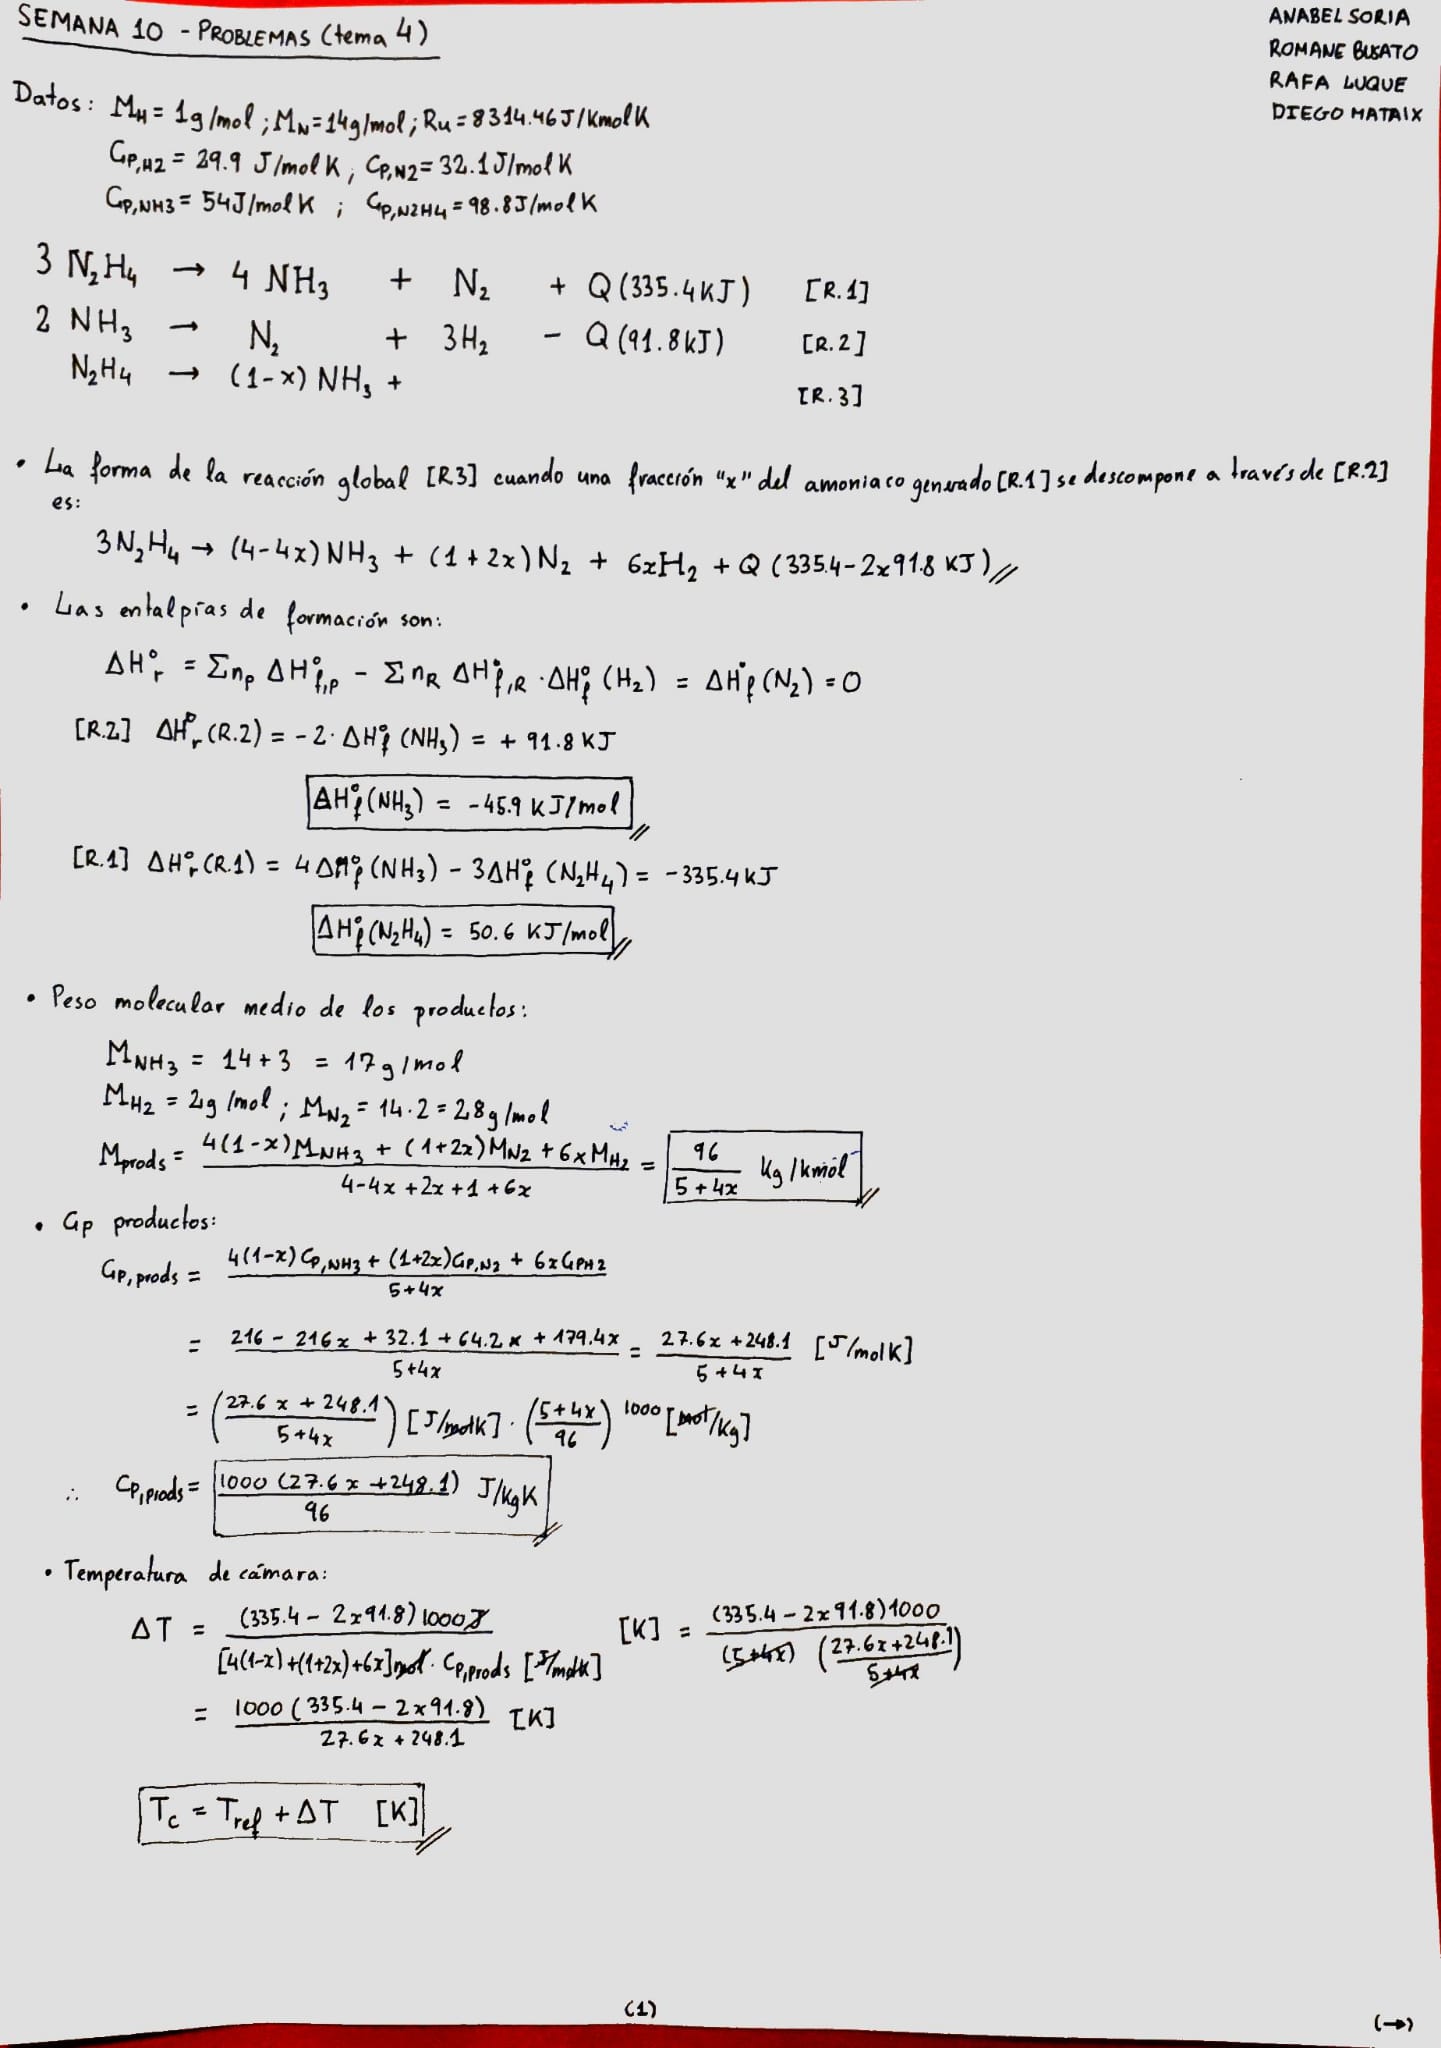 SEMANA 10 - PROBLEMAS (tema 4)
ANABEL SORIA
ROMANE BUSATO
RAFA LUQUE
DIEGO MATAIX
Datos: M_H = 1g/mol ; M_N = 14g/mol ; Ru = 8314.46 J/KmolK
Cp,H2 = 29.9 J/molK ; Cp,N2 = 32.1 J/molK
Cp,NH3 = 54J/molK ; Cp,N2H4 = 98.8J/molK
3 N₂H₄ → 4 NH₃ + N₂ + Q (335.4KJ) [R.1]
2 NH₃ → N₂ + 3H₂ - Q (91.8kJ) [R.2]
N₂H₄ → (1-x) NH₃ + [R.3]
• La forma de la reacción global [R.3] cuando una fracción "x" del amoniaco generado [R.1] se descompone a través de [R.2]
es:
3N₂H₄ → (4-4x)NH₃ + (1+2x)N₂ + 6xH₂ + Q (335.4-2x91.8 KJ)//
• Las entalpías de formación son:
ΔH°r = Σnp ΔH°f,p - ΣnR ΔH°f,R · ΔH°f (H₂) = ΔH°f (N₂) = 0
[R.2] ΔH°r (R.2) = -2· ΔH°f (NH₃) = + 91.8 KJ
ΔH°f (NH₃) = -45.9 KJ/mol //
[R.1] ΔH°r (R.1) = 4ΔH°f (NH₃) - 3ΔH°f (N₂H₄) = -335.4 kJ
ΔH°f (N₂H₄) = 50.6 KJ/mol //
• Peso molecular medio de los productos:
M_NH3 = 14+3 = 17g/mol
M_H2 = 2g/mol ; M_N2 = 14·2 = 28g/mol
Mprods = 4(1-x)M_NH3 + (1+2x)M_N2 + 6xM_H2 / 4-4x+2x+1+6x = 96 / 5+4x Kg/kmol //
• Cp productos:
Cp,prods = 4(1-x)Cp,NH3 + (1+2x)Cp,N2 + 6xCpH2 / 5+4x
= 216 - 216x + 32.1 + 64.2x + 179.4x / 5+4x = 27.6x + 248.1 / 5+4x [J/molK]
= (27.6x + 248.1 / 5+4x) [J/molK] · (5+4x / 96) 1000 [mol/Kg]
∴ Cp,prods = 1000 (27.6x + 248.1) / 96 J/kgK //
• Temperatura de cámara:
ΔT = (335.4 - 2x91.8) 1000J / [4(1-x)+(1+2x)+6x]mol · Cp,prods [J/molK] [K] = (335.4 - 2x91.8)1000 / (5+4x) (27.6x+248.1 / 5+4x)
= 1000 (335.4 - 2x91.8) / 27.6x + 248.1 [K]
Tc = Tref + ΔT [K] //
(1)
(→)